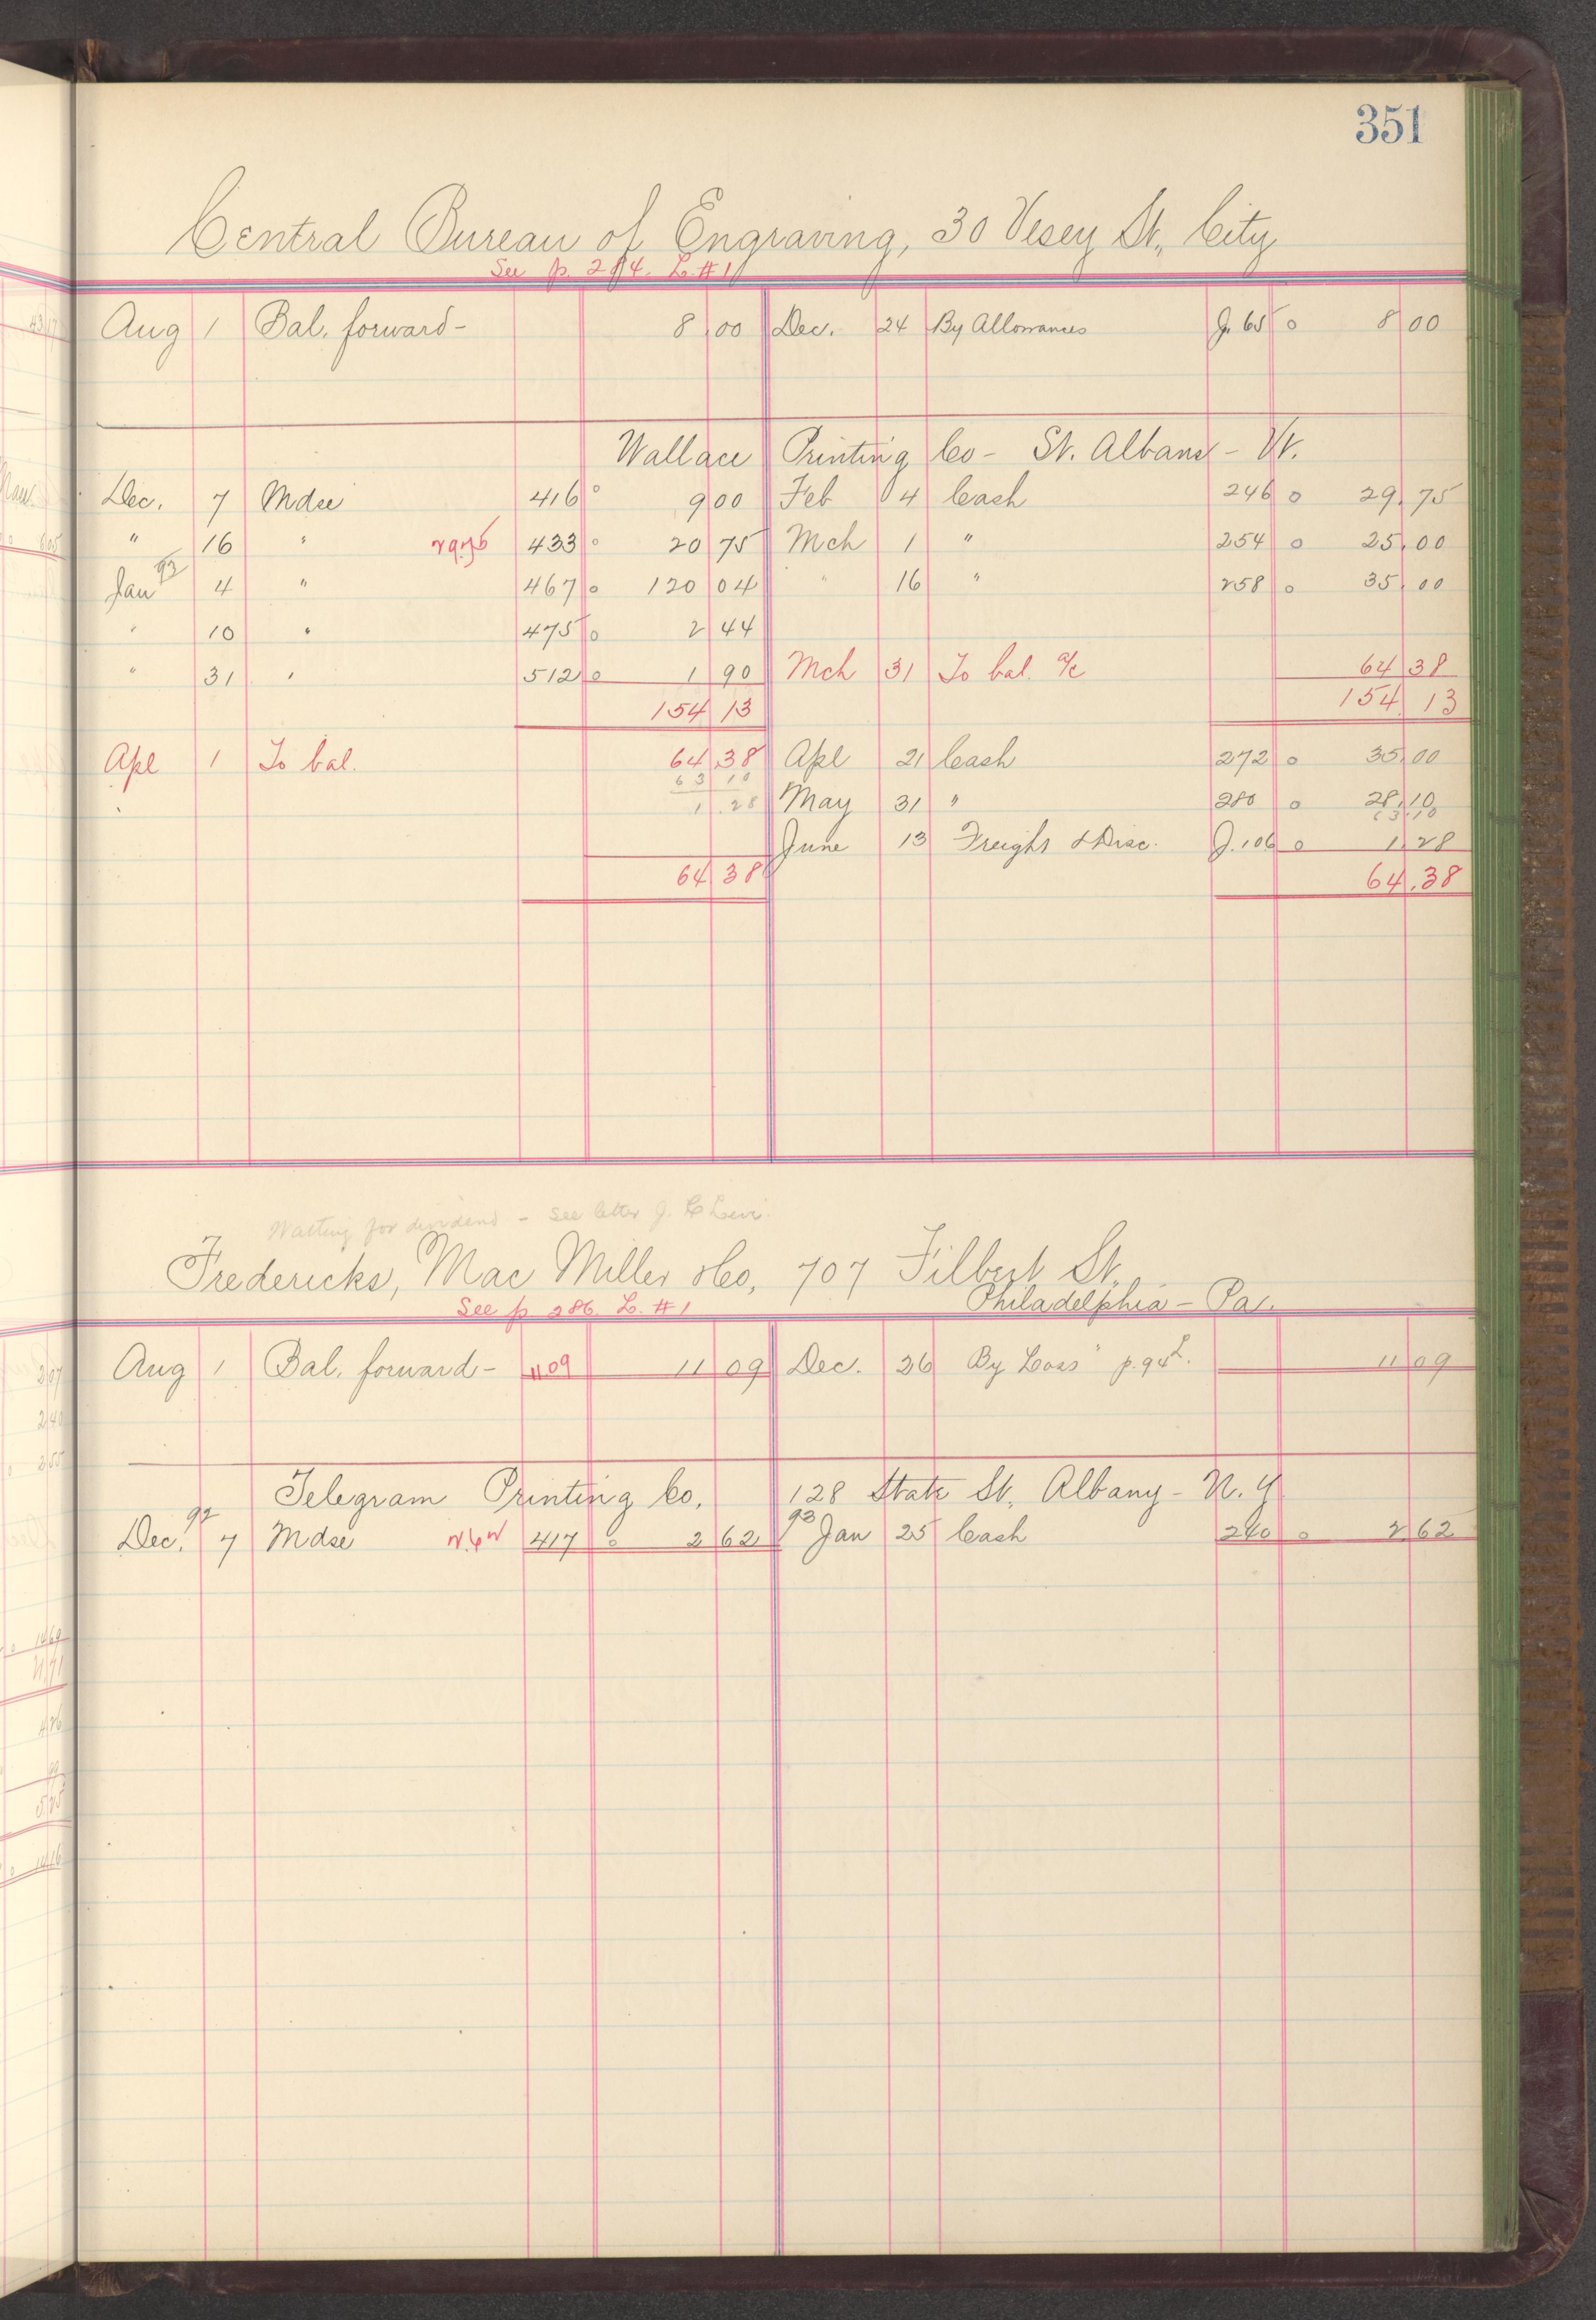 351
Central Bureau of Engraving, 30 Vesey St., City
See p. 284. L. #1
Aug 1 Bal. forward - 8.00 Dec. 24 By Allowances J. 65 o 8 00
Wallace Printing Co - St. Albans - Vt.
Dec. 7 Mdse 416 o 9 00 Feb 4 Cash 246 o 29.75
" 16 " 29.75 433 o 20 75 Mch 1 " 254 o 25.00
Jan 93 4 " 467 o 120 04 " 16 " 258 o 35.00
" 10 " 475 o 2 44
" 31 " 512 o 1 90 Mch 31 To bal. a/c 64 38
154 13 154.13
Apl 1 To bal. 64.38 Apl 21 Cash 272 o 35.00
63 10
1.28 May 31 " 280 o 28.10
63.10
June 13 Freight & Disc. J. 106 o 1.28
64 38 64.38
Waiting for dividend - see letter J. C Levi.
Fredericks, Mac Miller & Co, 707 Filbert St.
See p 286 L. #1 Philadelphia - Pa.
Aug 1 Bal. forward - 11.09 11 09 Dec. 26 By Loss" p. 94 L. 11 09
Telegram Printing Co. 128 State St. Albany - N.Y
Dec. 92 7 Mdse 2.62 417 o 2 62 93 Jan 25 Cash 240 o 2 62